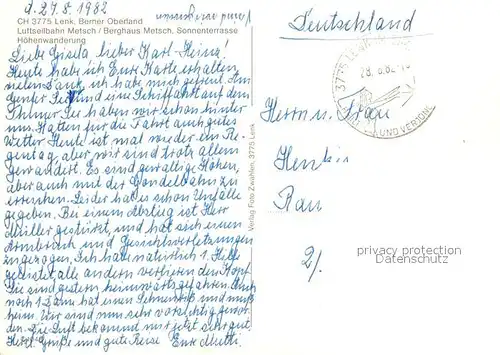 d. 27.8.1982
CH 3775 Lenk, Berner Oberland
Luftseilbahn Metsch / Berghaus Metsch, Sonnenterrasse
Höhenwanderung
Liebe Gisela, lieber Karl-Heinz!
Heute habe ich Eure Karte erhalten,
vielen Dank, ich habe mich gefreut. Am
Genfer See und eine Schiffahrt auf dem
Thuner See haben wir schon hinter
uns. Hatten für die Fahrt auch gutes
Wetter. Heute ist mal wieder ein Re-
gentag, aber wir sind trotz allem
gewandert. Es sind gewaltige Höhen,
aber auch mit der Gondelbahn zu
erreichen. Leider hat es schon Unfälle
gegeben. Bei einem Abstieg ist Herr
Müller gestürzt, und hat sich einen
Armbruch und Gesichtsverletzungen
zugezogen. Ich habe natürlich 1. Hilfe
geleistet, alle andern verlieren den Kopf.
Sie sind gestern heimwärts gefahren. Auch
noch 1 Dame hat einen Sehnenriß und muß
heim. Wir sind nun sehr vorsichtig gewor-
den. Die Luft bekommt mir jetzt sehr gut.
Herzl. Grüße und gute Reise Eure Mutti.
Verlag Foto Zwahlen, 3775 Lenk
Deutschland
3775 LENK
28.8.82
UND VERJÜN
Herrn u. Frau
Rau
2/.
privacy protection
DanskAM.